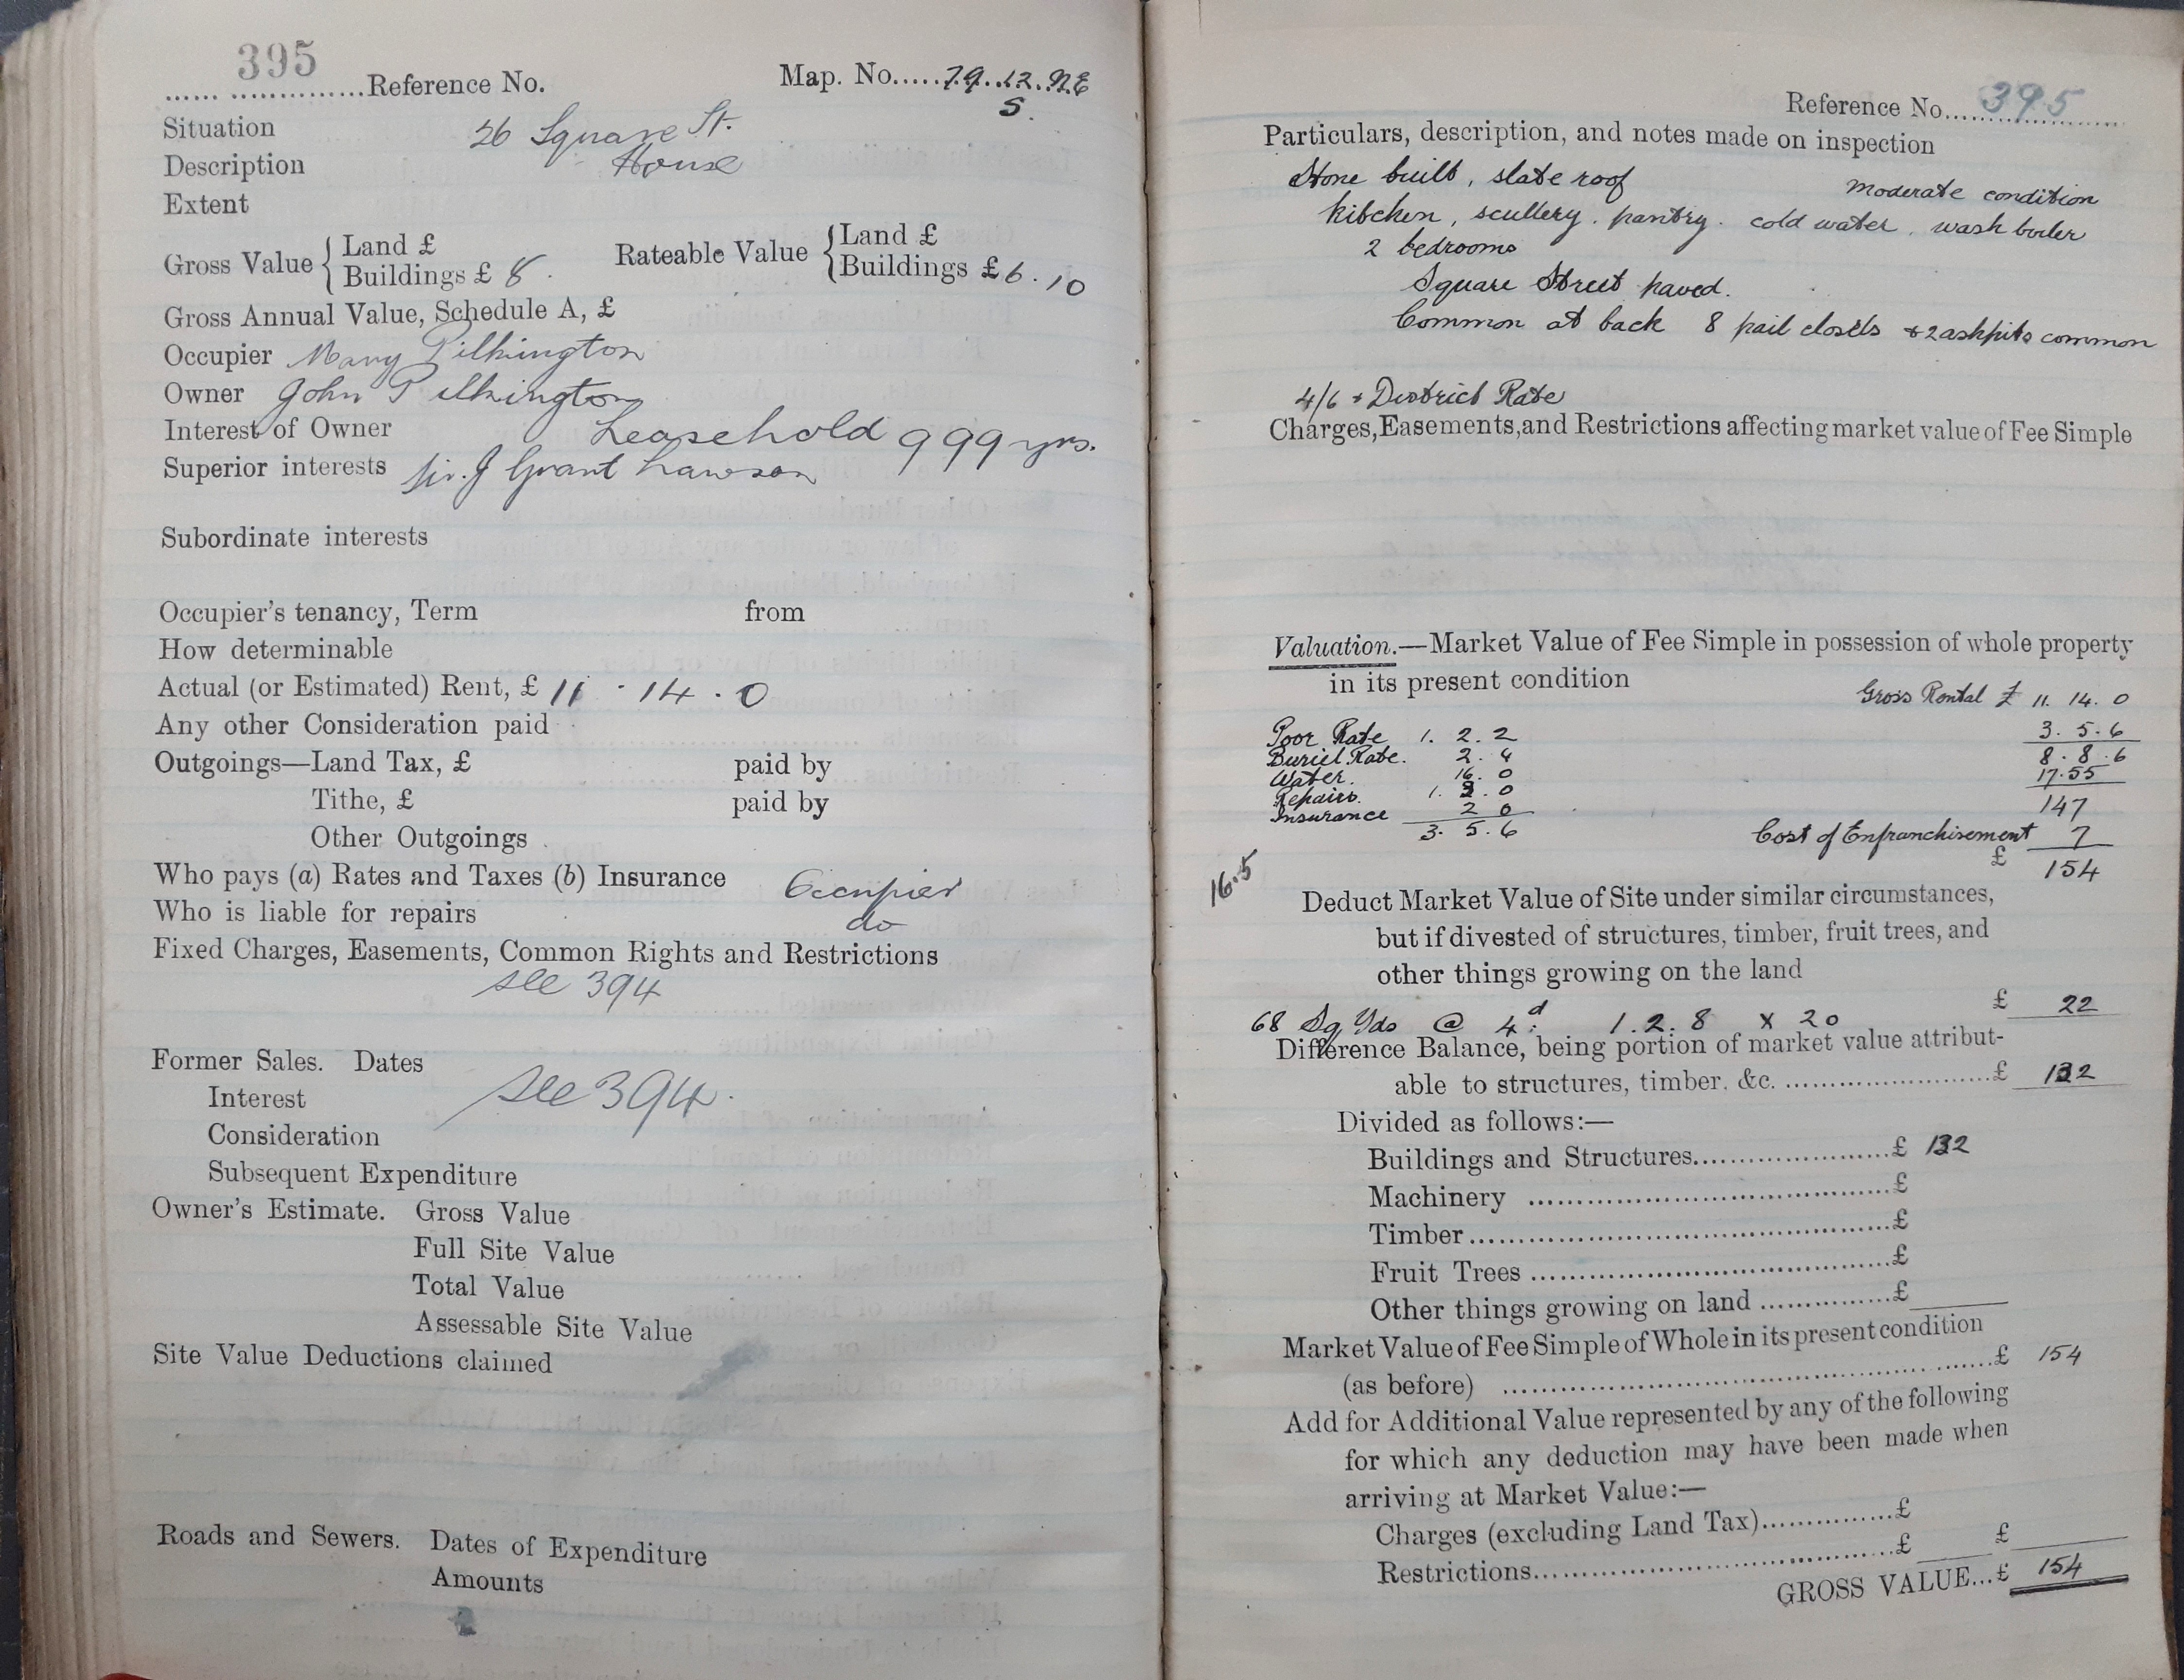 395
...... ..............Reference No. Map. No.....79.12.NE
S.
Situation 26 Square St.
Description House
Extent
Gross Value { Land £ Rateable Value { Land £
Buildings £ 8. Buildings £ 6.10
Gross Annual Value, Schedule A, £
Occupier Mary Pilkington
Owner John Pilkington
Interest of Owner Leasehold 999 yrs.
Superior interests Sir. J Grant Lawson
Subordinate interests
Occupier's tenancy, Term from
How determinable
Actual (or Estimated) Rent, £ 11 . 14 . 0
Any other Consideration paid
Outgoings—Land Tax, £ paid by
Tithe, £ paid by
Other Outgoings
Who pays (a) Rates and Taxes (b) Insurance Occupier
Who is liable for repairs do
Fixed Charges, Easements, Common Rights and Restrictions
see 394
Former Sales. Dates
Interest see 394.
Consideration
Subsequent Expenditure
Owner's Estimate. Gross Value
Full Site Value
Total Value
Assessable Site Value
Site Value Deductions claimed
Roads and Sewers. Dates of Expenditure
Amounts
Reference No. 395
Particulars, description, and notes made on inspection
Stone built, slate roof moderate condition
kitchen, scullery. pantry. cold water. wash boiler
2 bedrooms
Square Street paved.
Common at back 8 pail closets + 2 ashpits common
4/6 + District Rate
Charges, Easements, and Restrictions affecting market value of Fee Simple
Valuation.—Market Value of Fee Simple in possession of whole property
in its present condition
Gross Rental £ 11. 14. 0
Poor Rate 1. 2. 2 3. 5. 6
Buriel Rate. 2. 4 8. 8. 6
Water. 16. 0 17.55
Repairs. 1. 3. 0 147
Insurance 2 0
3. 5. 6 Cost of Enfranchisement 7
£ 154
16.5
Deduct Market Value of Site under similar circumstances,
but if divested of structures, timber, fruit trees, and
other things growing on the land
£ 22
68 Sq Yds @ 4d. 1. 2. 8 x 20
Difference Balance, being portion of market value attribut-
able to structures, timber. &c. ........................£ 132
Divided as follows:—
Buildings and Structures......................£ 132
Machinery ..........................................£
Timber.................................................£
Fruit Trees ..........................................£
Other things growing on land ...............£
Market Value of Fee Simple of Whole in its present condition
(as before) ..........................................£ 154
Add for Additional Value represented by any of the following
for which any deduction may have been made when
arriving at Market Value:—
Charges (excluding Land Tax)...............£
Restrictions..........................................£ £
GROSS VALUE...£ 154